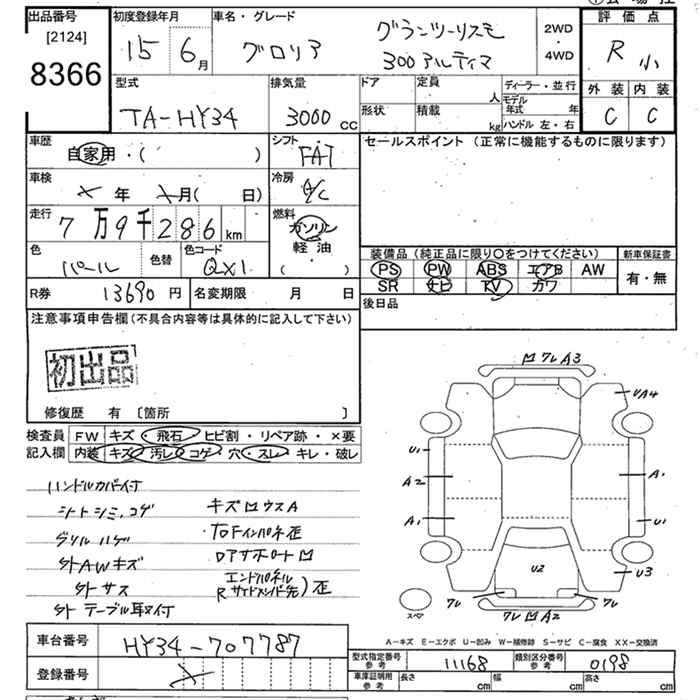 出品番号
[2124]
8366
初度登録年月
15年 6月
車名・グレード
グロリア
グランツーリスモ
300アルティマ
2WD
・
4WD
評価点
R 小
外装 内装
C C
型式
TA-HY34
排気量
3000 cc
ドア
形状
定員
人
積載
kg
ディーラー・並行
モデル年式 年
ハンドル 左・右
車歴
自家用・( )
シフト
FAT
車検
× 年 ×月( 日)
冷房
A/C
走行
7万9千286km
燃料
ガソリン
軽油
( )
色
パール
色替
色コード
QX1
R券
13690円
名変期限 月 日
セールスポイント (正常に機能するものに限ります)
装備品(純正品に限り〇をつけてください)
PS PW ABS エアB AW
SR ナビ TV カワ
新車保証書
有・無
後日品
注意事項申告欄(不具合内容等は具体的に記入して下さい)
初出品
修復歴 有 〔箇所 〕
検査員記入欄
FW キズ・飛石・ヒビ割・リペア跡・×要
内装 キズ・汚レ・コゲ・穴・スレ・キレ・破レ
ハンドルカバー付
シートシミ、コゲ
グリルハゲ
外AWキズ
外サス
外テーブル耳ヌイ付
キズ凹ウスA
右Fインパネ歪
ロアサポート凹
エンドパネル
Rサイドメンバ先)歪
凹 フレ A3
UA4
U1
A2
A1
A1
U1
U3
U2
フレ
フレ
フレ凹A2
スペア
A-キズ E-エクボ U-凹み W-補修跡 S-サビ C-腐食 XX-交換済
車台番号
HY34-707787
登録番号
×
型式指定番号
参考
11168
類別区分番号
参考
0198
車庫証明用
参考
長さ cm 幅 cm 高さ cm